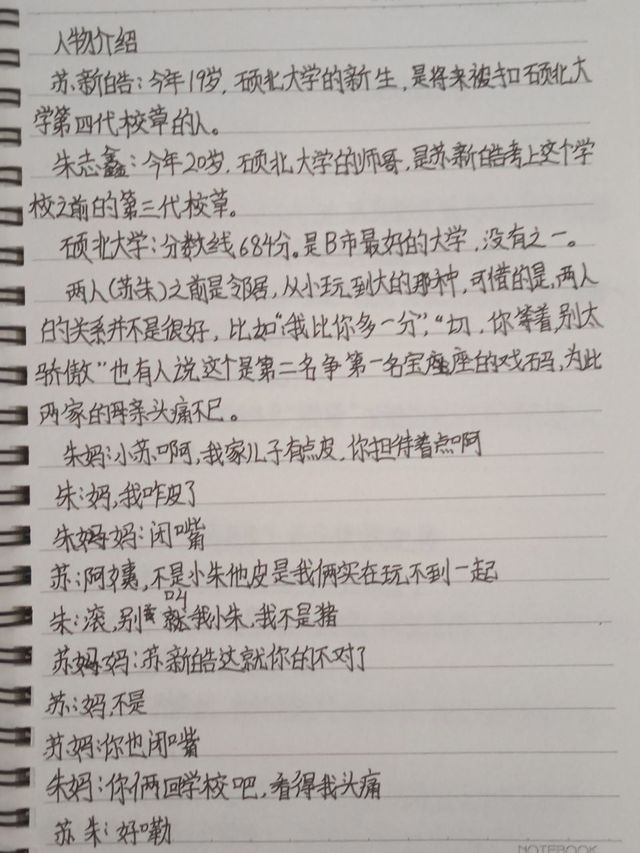 人物介绍
苏新皓:今年19岁,硕北大学的新生,是将来被扣硕北大
学第四代校草的人。
朱志鑫:今年20岁,硕北大学的师哥,是苏新皓考上这个学
校之前的第三代校草。
硕北大学:分数线684分。是B市最好的大学,没有之一。
两人(苏朱)之前是邻居,从小玩到大的那种,可惜的是,两人
的关系并不是很好,比如:“我比你多一分”,“切,你等着,别太
骄傲”也有人说这个是第二名争第一名宝座座的戏码,为此
两家的母亲头痛不已。
朱妈:小苏啊啊,我家儿子有点皮,你担待着点啊
朱:妈,我咋皮了
朱妈妈:闭嘴
苏:阿姨,不是小朱他皮是我俩实在玩不到一起
朱:滚,别叫我小朱,我不是猪
苏妈妈:苏新皓这就你的不对了
苏:妈,不是
苏妈:你也闭嘴
朱妈:你俩回学校吧,看得我头痛
苏 朱:好嘞
NOTEBOOK